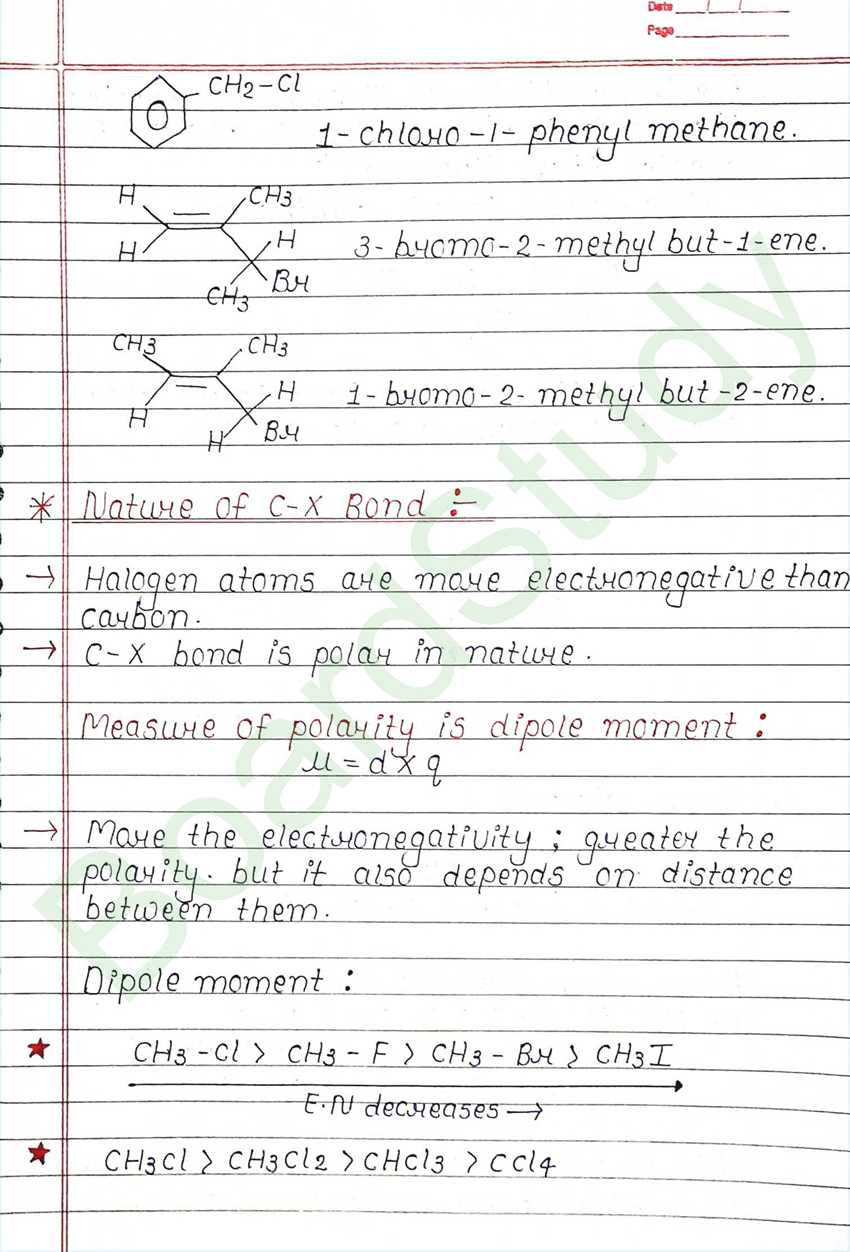 Date / /
Page
CH2-Cl
1-chloro-1-phenyl methane.
H CH3
H
H 3-bromo-2-methyl but-1-ene.
Br
CH3
CH3 CH3
H 1-bromo-2-methyl but-2-ene.
H
H Br
* Nature of C-X Bond :-
→ Halogen atoms are more electronegative than
carbon.
→ C-X bond is polar in nature.
Measure of polarity is dipole moment :
μ = d x q
→ More the electronegativity ; greater the
polarity. but it also depends on distance
between them.
Dipole moment :
★ CH3-Cl > CH3-F > CH3-Br > CH3I
E.N decreases →
★ CH3Cl > CH3Cl2 > CHCl3 > CCl4
BoardStudy